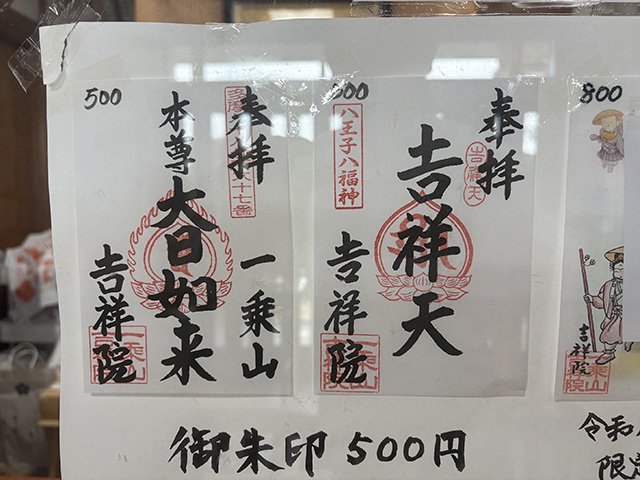 500
奉拝
一乗山
本尊
大日如来
吉祥院
500
八王子八福神
奉拝
吉祥天
吉祥天
吉祥院
800
吉祥院
御朱印 500円
令和
限定